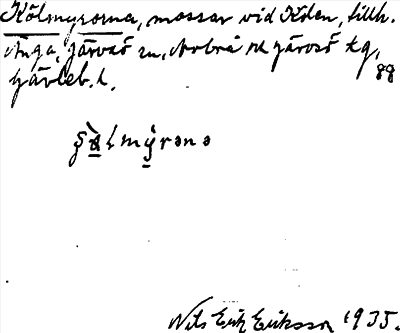 Kölmyrorna, mossar vid Kölen, tillh.
Änga, Järvsö sn, Arbrå ok Järvsö tg,
Gävleb. l. 88
Nils Erik Eriksson 1935.